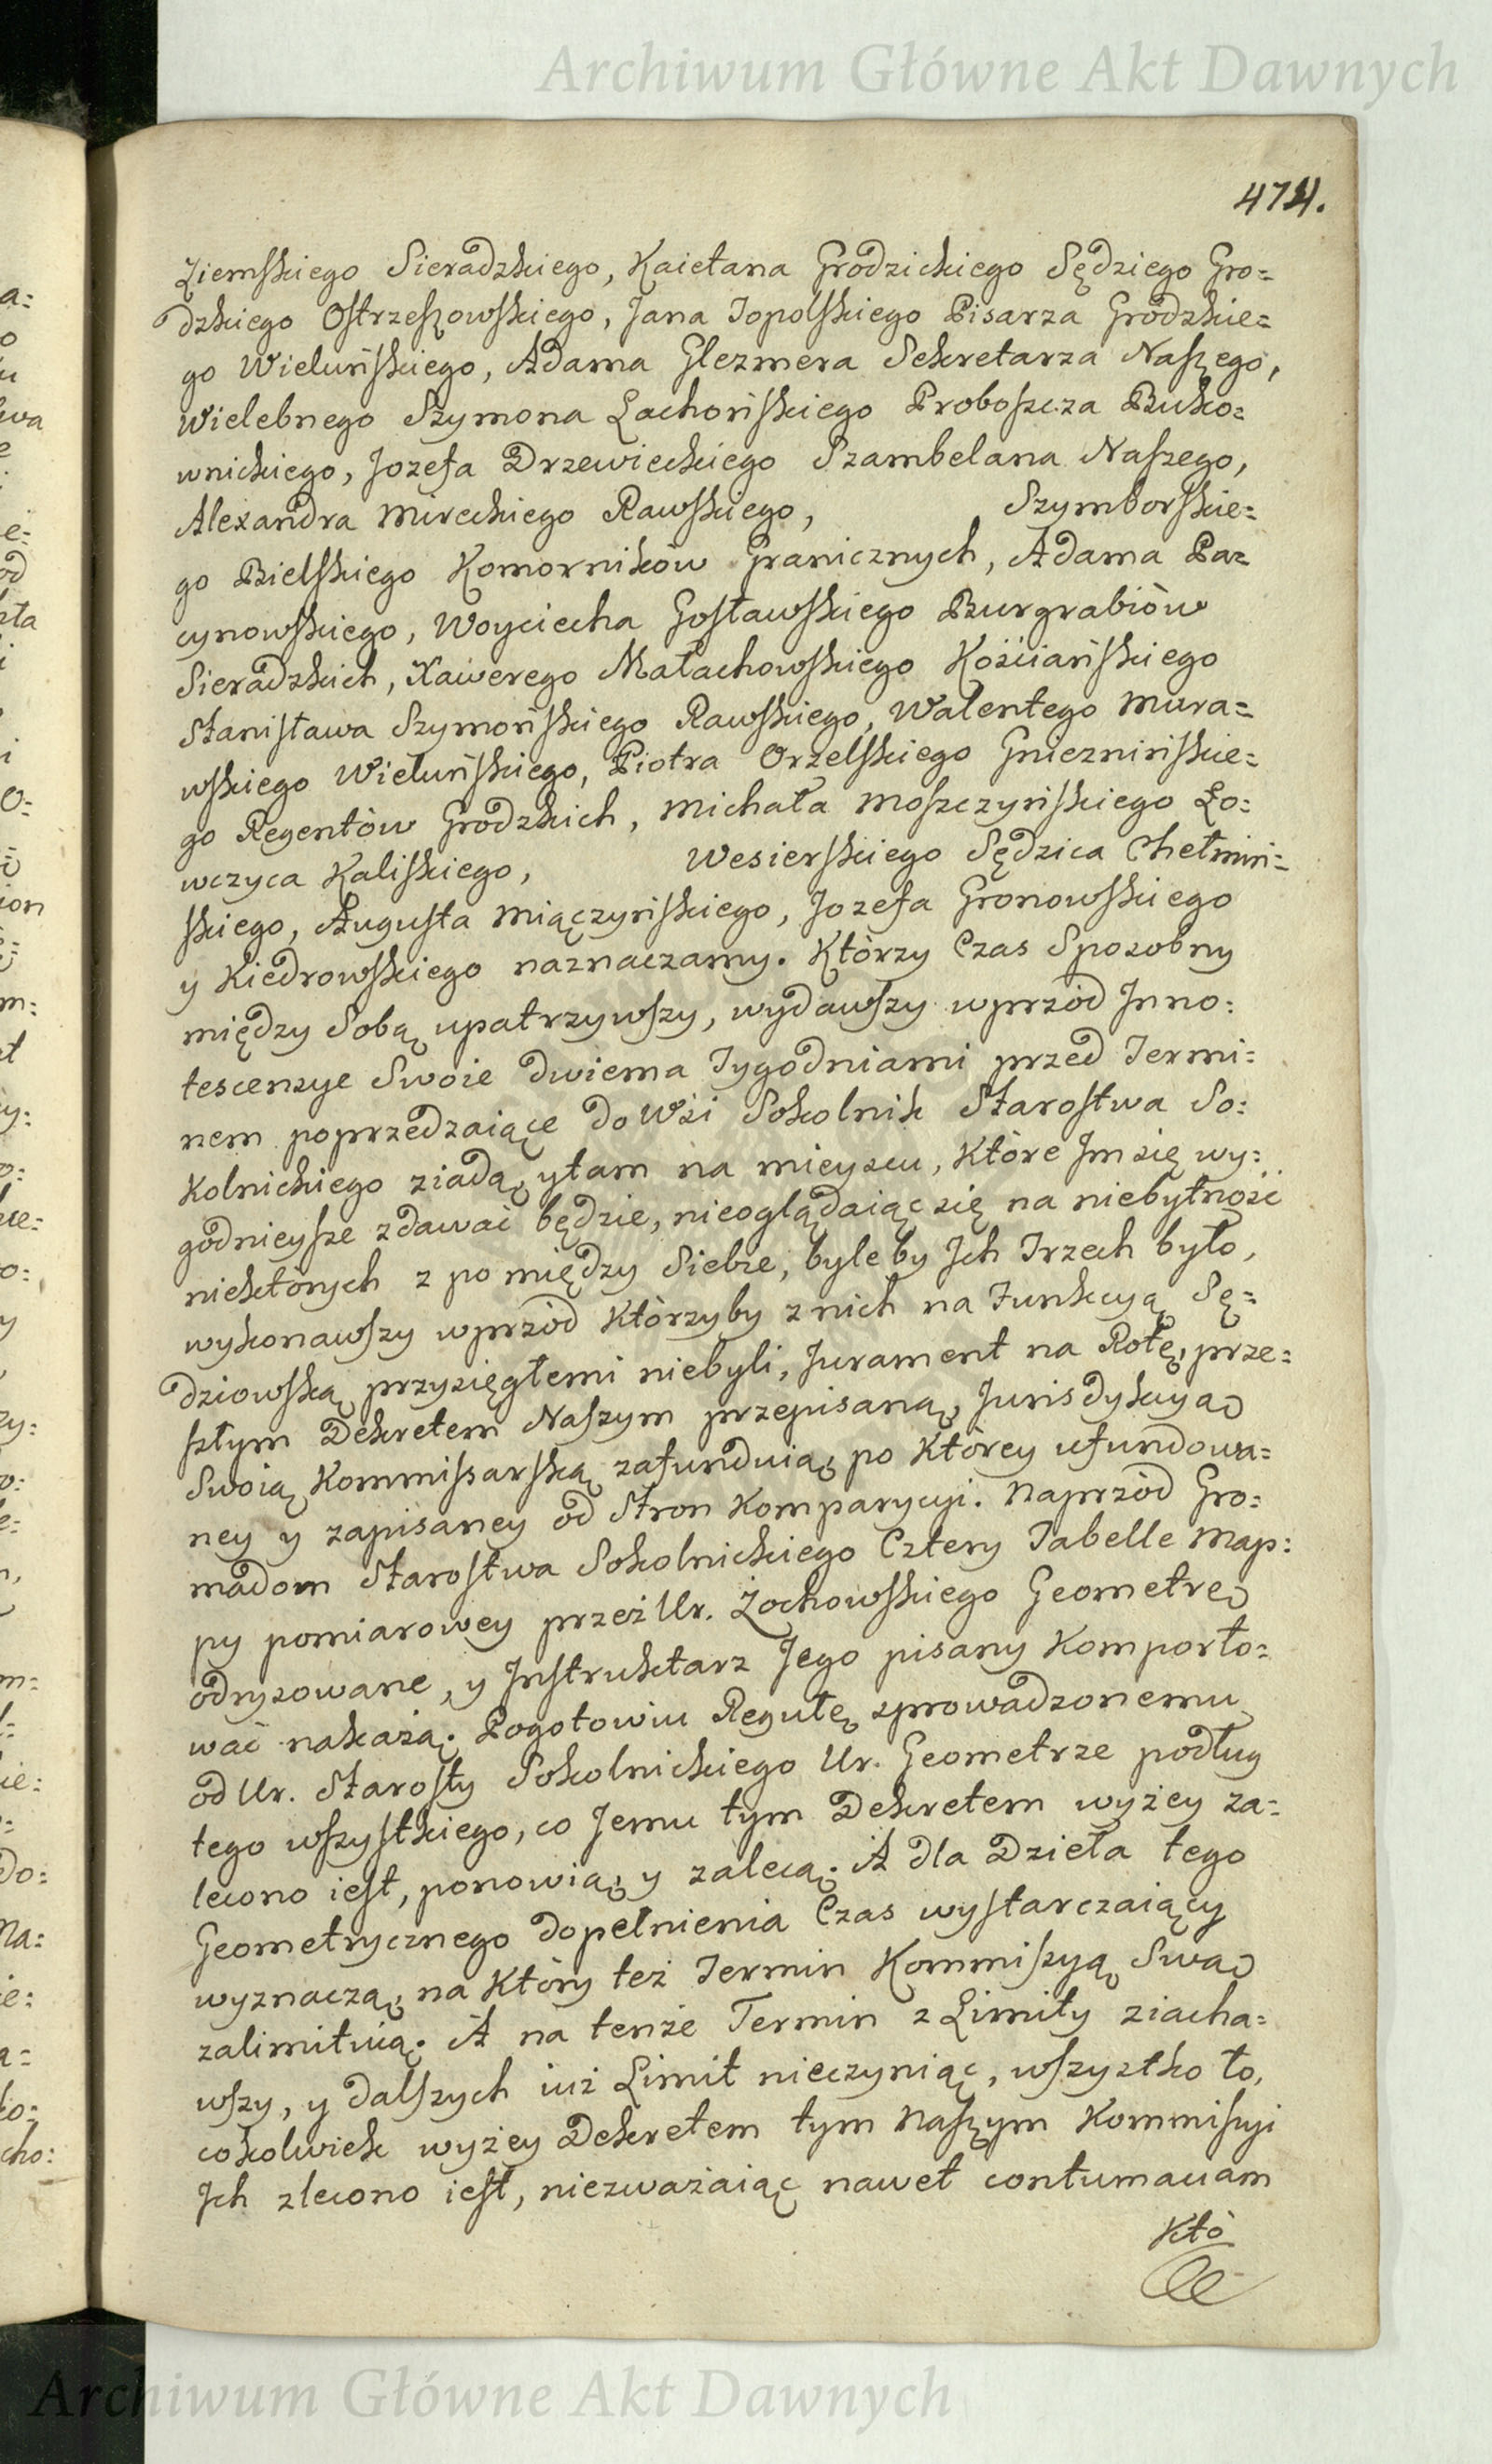 Archiwum Główne Akt Dawnych
474.
Ziemskiego Sieradzkiego, Kaietana Grodzickiego Sędziego Gro=
dzkiego Ostrzeszowskiego, Jana Topolskiego Pisarza Grodzkie=
go Wieluńskiego, Adama Glezmera Sekretarza Naszego,
Wielebnego Szymona Lachońskiego Proboszcza Buko=
wnickiego, Jozefa Drzewieckiego Szambelana Naszego,
Alexandra Mireckiego Rawskiego, Szymborskie=
go Bielskiego Komorników Granicznych, Adama Pa=
cynowskiego, Woyciecha Gosławskiego Burgrabiów
Sieradzkich, Xawerego Małachowskiego Kościańskiego
Stanisława Szymońskiego Rawskiego, Walentego Mura=
wskiego Wieluńskiego, Piotra Orzelskiego Gnieznińskie=
go Regentów Grodzkich, Michała Moszczyńskiego Ło=
wczyca Kaliskiego, Wesierskiego Sędzica Chełmiń=
skiego, Augusta Miączyńskiego, Jozefa Gronowskiego
y Kiedrowskiego naznaczamy. Którzy Czas Sposobny
między Sobą upatrzywszy, wydawszy wprzód Inno:
tescensye Swoie dwiema Tygodniami przed Termi:
nem poprzedzaiące do Wśi Sokolnik Starostwa So:
kolnickiego ziadą, y tam na mieyscu, które Im się wy:
godnieysze zdawać będzie, nieoglądaiąc się na niebytność
niektórych z pomiędzy Siebie, byleby Ich Trzech było,
wykonawszy wprzód którzyby z nich na Funkcyą Sę=
dziowską przysięgłemi niebyli, Jurament na Rotę, prze=
szłym Dekretem Naszym przepisaną, Jurisdykcyą
Swoią Kommissarską zafunduią, po którey ufundowa=
ney y zapisaney od Stron Komparycyi. Naprzód Gro:
madom Starostwa Sokolnickiego Cztery Tabelle Map:
py pomiarowey przeż Ur. Żochowskiego Geometrę
odrysowane, y Instruktarz Jego pisany Komporto=
wać nakażą. Pogotowiu Regułę sprowadzonemu
od Ur. Starosty Sokolnickiego Ur. Geometrze podług
tego wszystkiego, co Jemu tym Dekretem wyżey za=
lecono iest, ponowią, y zalecą. A dla Dzieła tego
Geometrycznego dopełnienia Czas wystarczaiący
wyznaczą, na który też Termin Kommiszyą Swą
zalimituią. A na tenże Termin z Limity ziacha=
wszy, y dalszych iuż Limit nieczyniąc, wszystko to,
cokolwiek wyżey Dekretem tym Naszym Kommissyi
Ich zlecono iest, niezważaiąc nawet contumaciam
Któ
Archiwum Główne Akt Dawnych